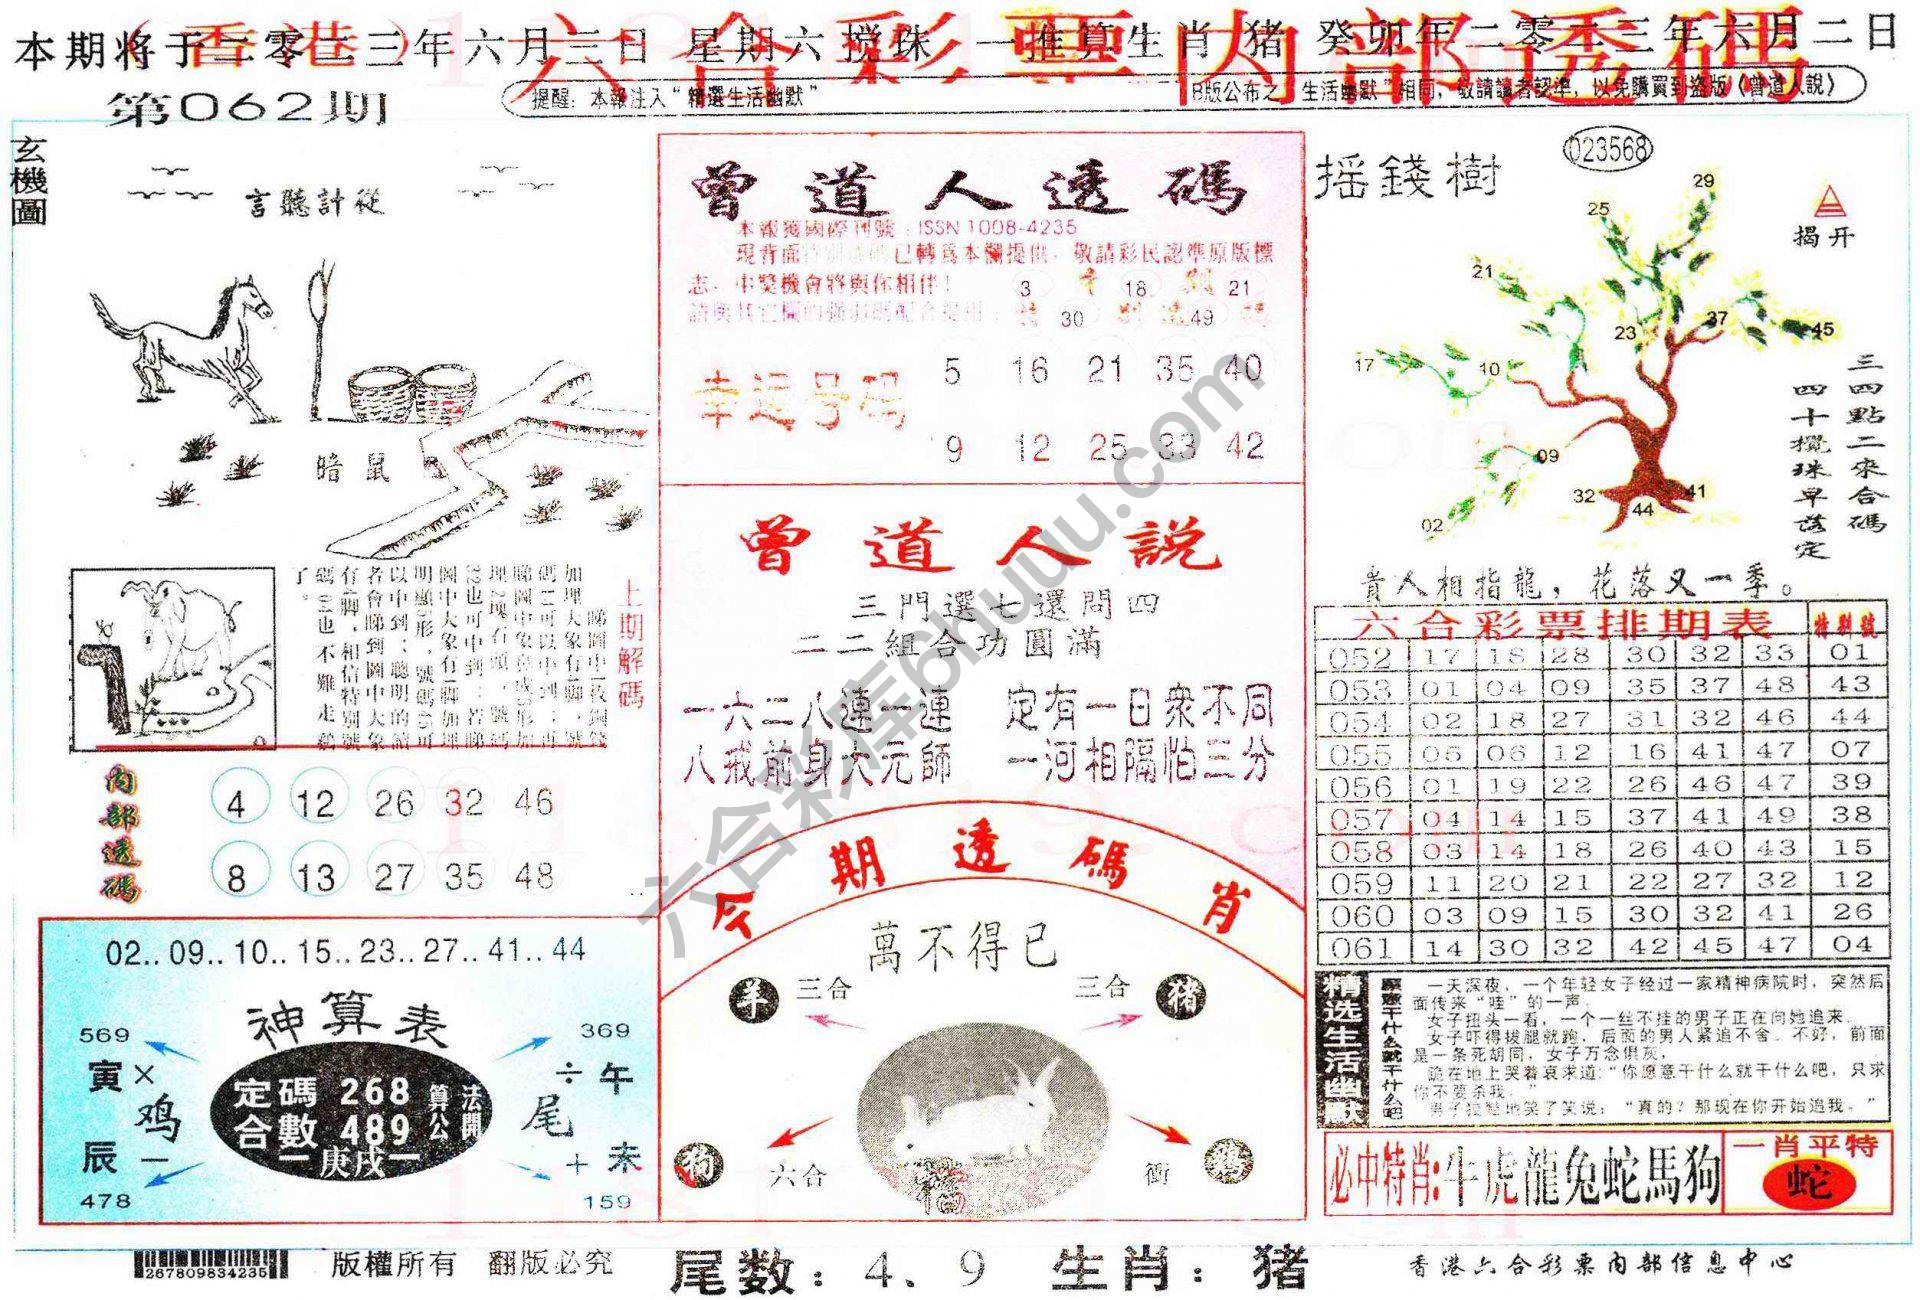 香港六合彩票内部透码
本期将于二零二三年六月三日 星期六搅珠 一推算生肖 猪 癸卯年二零二三年六月二日
第062期
提醒：本報注入“精選生活幽默”
B版公布之“生活幽默”相同，敬請讀者認準，以免購買到盜版《曾道人說》
玄機圖
言聽計從
暗鼠
上期解碼
内部透碼
4 12 26 32 46
8 13 27 35 48
02..09..10..15..23..27..41..44
神算表
569
369
寅×
÷午
鸡
尾
定碼 268 算法
合數 489 公開
一庚戌一
辰一
+未
478
159
曾道人透碼
本報獲國際刊號：ISSN 1008-4235
現背面特別透碼已轉爲本欄提供，敬請彩民認準原版標
志，中獎機會將與你相伴！
3 18 21
30 49
幸运号码
5 16 21 35 40
9 12 25 33 42
曾道人説
三門選七還問四
二二組合功圓滿
一六二八連一連 定有一日衆不同
八戒前身大元師 一河相隔怕三分
今期透碼肖
萬不得已
羊 三合
三合 猪
狗 六合
衝 鷄
福
摇錢樹
023568
揭开
29
25
21
37
45
23
17
10
09
32
41
44
02
三四點二來合碼
四十攪珠早落定
貴人相指龍，花落又一季。
六合彩票排期表 特别號
052 17 18 28 30 32 33 01
053 01 04 09 35 37 48 43
054 02 18 27 31 32 46 44
055 05 06 12 16 41 47 07
056 01 19 22 26 46 47 39
057 04 14 15 37 41 49 38
058 03 14 18 26 40 43 15
059 11 20 21 22 27 32 12
060 03 09 15 30 32 41 26
061 14 30 32 42 45 47 04
精选生活幽默
愿意干什么就干什么吧
一天深夜，一个年轻女子经过一家精神病院时，突然后
面传来“哇”的一声。
女子扭头一看，一个一丝不挂的男子正在向她追来。
女子吓得拔腿就跑，后面的男人紧追不舍。不好，前面
是一条死胡同，女子万念俱灰，
跪在地上哭着哀求道：“你愿意干什么就干什么吧，只求
你不要杀我。”
男子狡黠地笑了笑说：“真的？那现在你开始追我。”
必中特肖：牛虎龍兔蛇馬狗
一肖平特
蛇
267809834235
版權所有 翻版必究
尾数：4、9 生肖：猪
香港六合彩票内部信息中心
六合彩库6huuu.com